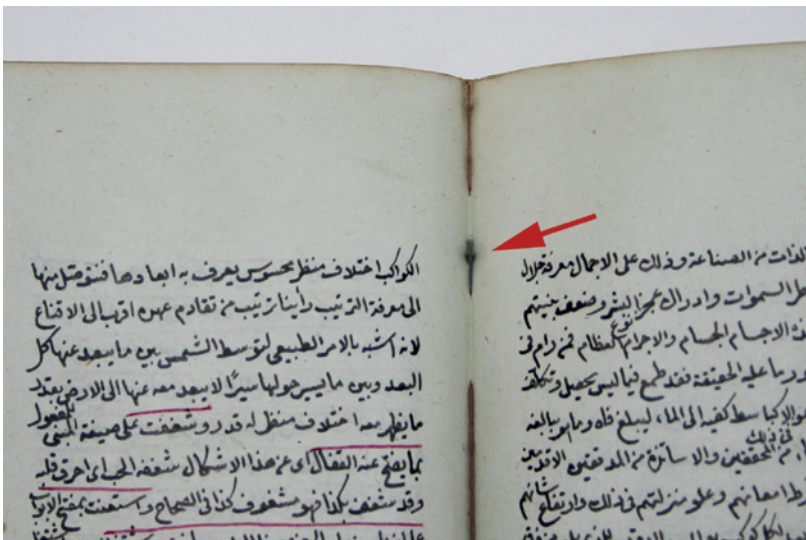 الذات من الصناعة وذلك على الاجمال معرفة جلال
السموات وادراك عجز البشر وضعف بنيتهم
الاجسام الجسام والاجرام العظام فمن رام فى
ما عليه الحقيقة فقد طمع فيما ليس
الا كباسط كفيه الى الماء ليبلغ فاه وما هو ببالغه
المحققين والاساتذة من المدققين الاقدمين
امعانهم وعلو منزلتهم فى ذلك وارتفاع شانهم
الكواكب اختلاف منظر محسوس يعرف به ابعادها فنتوصل منها
الى معرفة الترتيب راينا ترتيب من تقادم عهده اقرب الى الاقناع
لانه اشبه بالامر الطبيعى لتوسط الشمس بين ما يبعد عنها كل
البعد وبين ما يسير حولها سيرًا لا يبعد معه عنها الى الارض بقدر
ما يظهر معه اختلاف منظر له قدر وشغفت على صيغة المبنى للمفعول
بما يفتح عنه القفال اى عن هذا الاشكال شغفه الحب اى احرق قلبه
وقد شغف بكذا فهو مشغوف كذا فى الصحاح واستعنت بمفتح الابواب